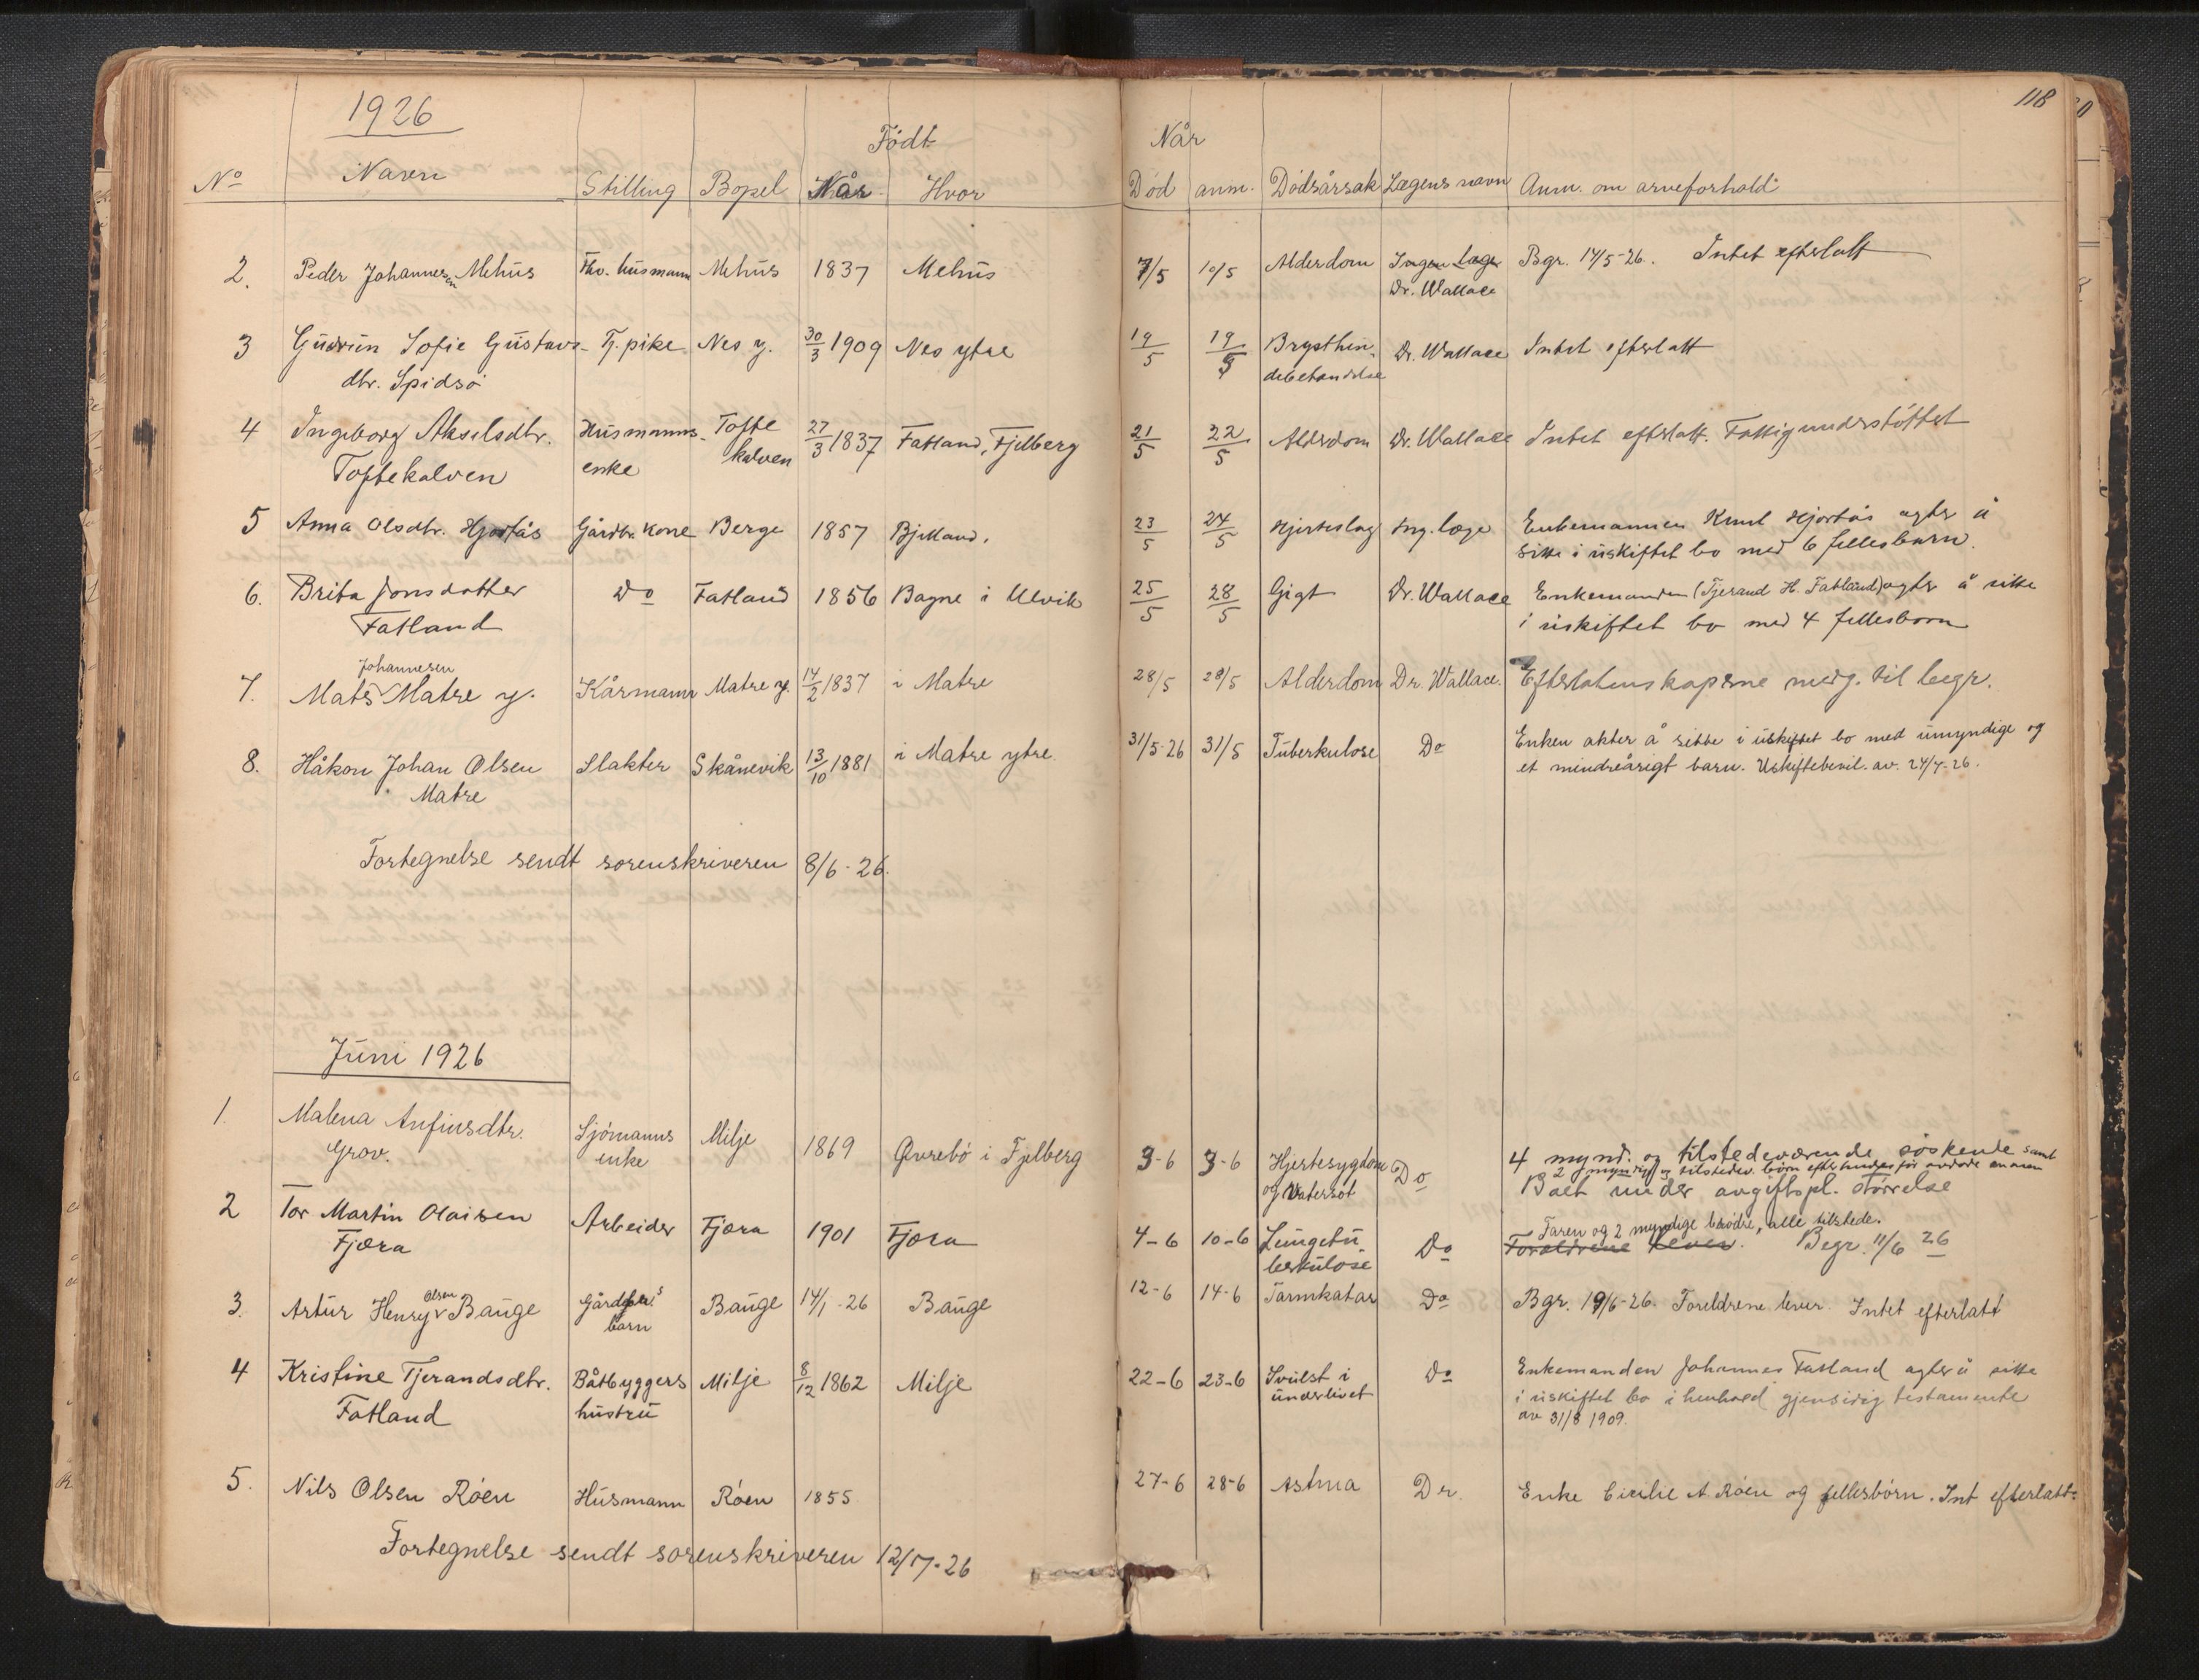 118
1926
Født
Når
No Navn Stilling Bopel Når Hvor Død anm. Dødsårsak Lægens navn Anm. om arveforhold
2. Peder Johannessen Mehus Fhv. husmann Mehus 1837 Mehus 7/5 10/5 Alderdom Ingen Læge Bgr. 14/5-26. Intet efterlatt
Dr. Wallace
3 Gudrun Sofie Gustavs- Tj. pike Nes y. 30/3 1909 Nes ytre 19/5 19/5 Brysthin- Dr. Wallace Intet efterlatt
dtr. Spidsø debetendelse
4 Ingeborg Akselsdtr. Husmanns- Tofte 27/3 1837 Fatland, Fjelberg 21/5 22/5 Alderdom Dr. Wallace Intet efterlatt. Fattigunderstøttet
Toftekalven enke kalven
5 Anna Olsdtr. Hjortås Gårdbr. kone Berge 1857 Bjelland. 23/5 24/5 Hjerteslag Ing. læge Enkemannen Knut Hjortås agter å
sitte i uskiftet bo med 6 fellesbarn.
6. Brita Jonsdatter Do Fatland 1856 Bagne i Ulvik 25/5 28/5 Gigt Dr. Wallace Enkemanden (Tjerand H. Fatland) agter å sitte
Fatland i uskiftet bo med 4 fellesborn
Johannesen
7. Mats Matre y. Kårmann Matre y. 14/2 1837 i Matre 28/5 28/5 Alderdom Dr. Wallace. Efterlatenskapene medg. til begr.
8. Håkon Johan Olsen Slakter Skånevik 13/10 1881 i Matre ytre 31/5-26 31/5 Tuberkulose Do Enken akter å sitte i uskiftet bo med umyndige og
Matre et mindreårigt barn. Uskiftebevil. av. 24/7-26.
Fortegnelse sendt sorenskriveren 8/6-26.
Juni 1926
1. Malena Anfinsdtr. Sjømanns Milje 1869 Øvrebø i Fjelberg 3-6 3-6 Hjertesygdom Do 4 mynd. og tilstedeværende søskende samt
Grov. enke og Vatersot 2 myndige og tilstedev. børn efter
Boet under avgiftspl. størrelse
2 Tor Martin Olaisen Arbeider Fjæra 1901 Fjæra 4-6 10-6 Lungetu Do Faren og 2 myndige brødre, alle tilstede.
Fjæra berkulose Foreldrene lever. Begr. 11/6 26
3. Artur Henry Olsen Bauge Gårdbr.s Bauge 14/1-26 Bauge 12-6 14-6 Tarmkatar Do Bgr. 19/6-26. Foreldrene lever. Intet efterlatt
barn
4 Kristine Tjerandsdtr. Båtbyggers Milje 8/12 1862 Milje 22-6 23-6 Svulst i Do Enkemanden Johannes Fatland agter å sitte
Fatland hustru underlivet i uskiftet bo i henhold gjensidig testamente
av 31/8 1909.
5. Nils Olsen Røen Husmann Røen 1855 27-6 28-6 Astma Dr. Enke Cicilie A. Røen og fellesbørn. Int efterlatt.
Fortegnelse sendt sorenskriveren 12/7-26